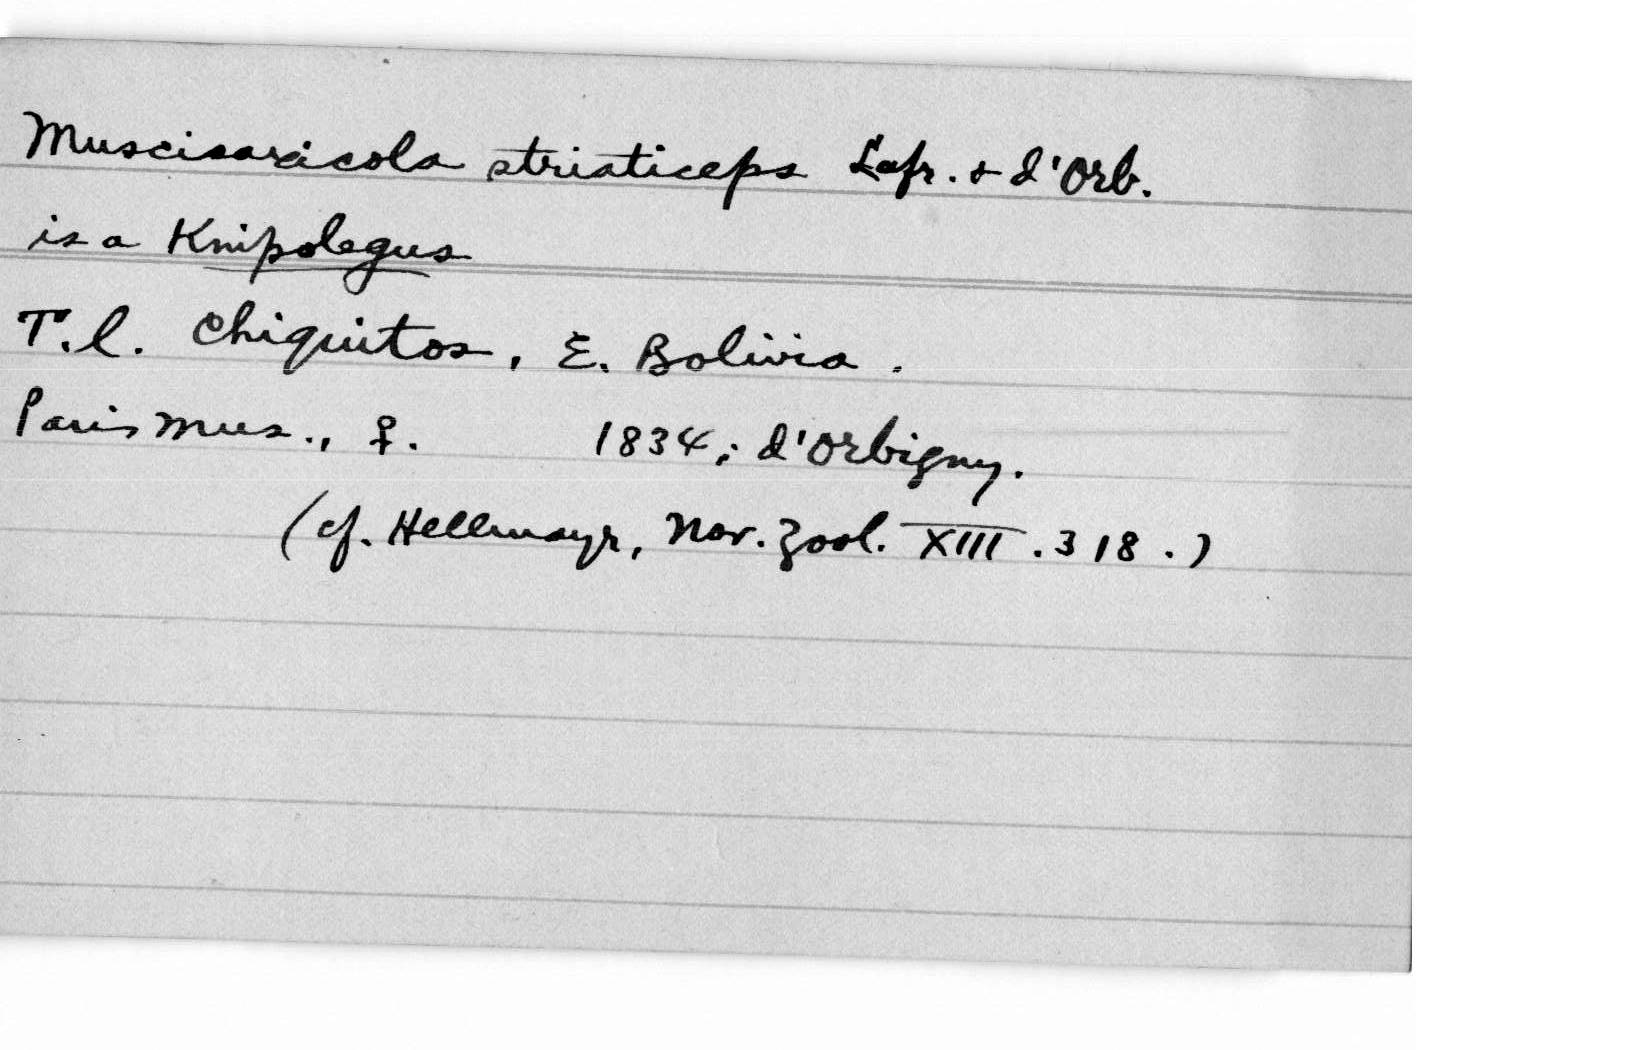 Muscisaxicola striaticeps Lafr. & d'Orb.
is a Knipolegus
T.l. Chiquitos, E. Bolivia.
Paris Mus., ♀. 1834; d'Orbigny.
(cf. Hellmayr, Nov. Zool. XIII. 318.)